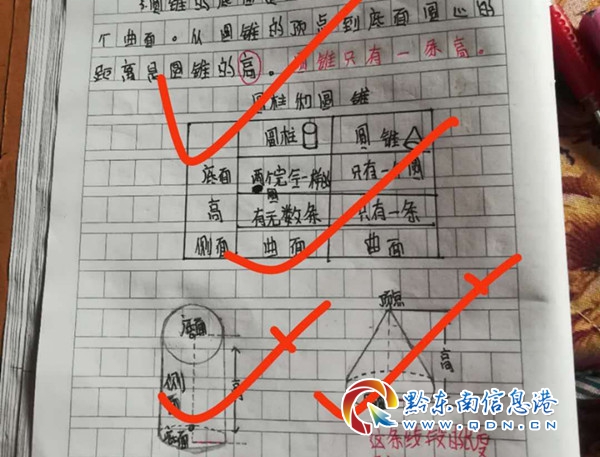 圆锥的底面是
个曲面。从圆锥的顶点到底面圆心的
距离是圆锥的高。圆锥只有一条高。
圆柱和圆锥
圆柱 圆锥
底面 两个完全一样的圆 只有一个圆
高 有无数条 只有一条
侧面 曲面 曲面
底面 顶点
侧面 高 高
底面
这条线段的长度
黔东南信息港
WWW.QDN.CN